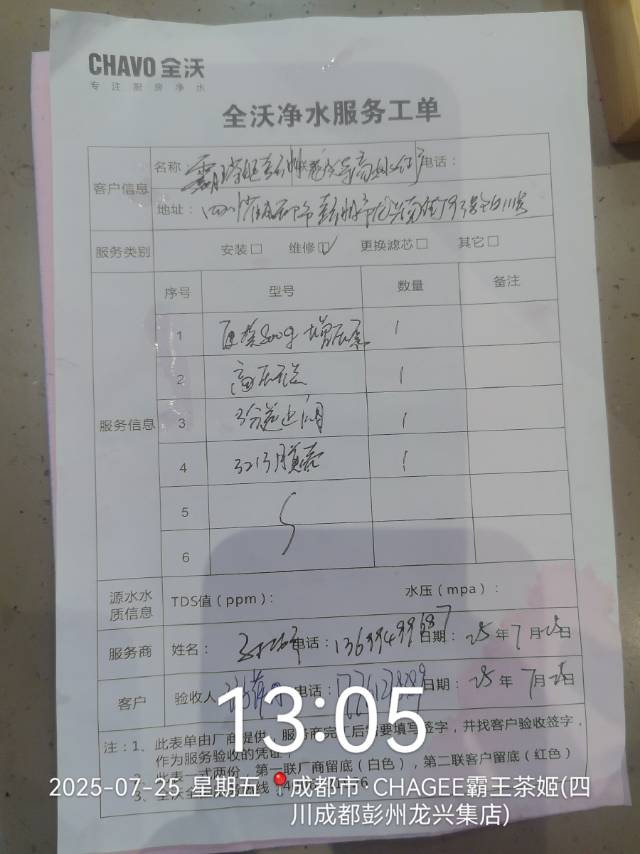 CHAVO 全沃
专注厨房净水
全沃净水服务工单
客户信息
名称：霸王茶姬彭州龙兴集
电话：
地址：四川省成都市彭州市龙兴南街
服务类别
安装□ 维修☑ 更换滤芯□ 其它□
服务信息
序号 型号 数量 备注
1 800g增压泵 1
2 高压 1
3 3分逆止阀 1
4 3213膜壳 1
5
6
源水水质信息
TDS值（ppm）： 水压（mpa）：
服务商 姓名： 电话：13699499687 日期：25年7月25日
客户 验收人 电话： 日期：25年7月25日
注：1、此表单由厂商提供，服务商完工后需要填写签字，并找客户验收签字，
作为服务验收的凭证
2、此表一式两份，第一联厂商留底（白色），第二联客户留底（红色）
3、全沃全
13:05
2025-07-25 星期五 成都市· CHAGEE霸王茶姬(四
川成都彭州龙兴集店)